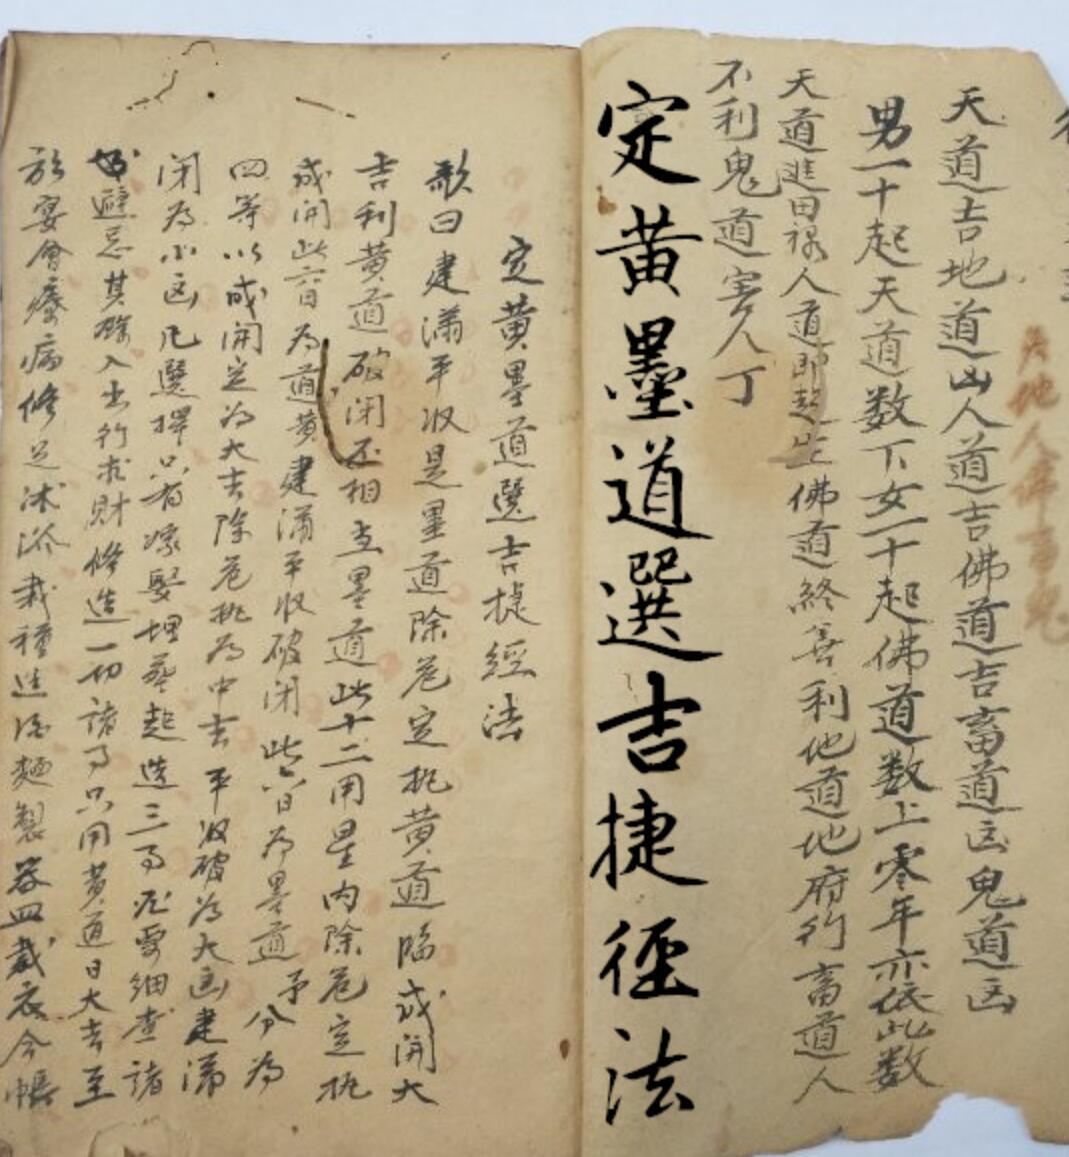 天道吉地道凶人道吉佛道吉畜道凶鬼道凶
男一十起天道数下女一十起佛道数上零年亦依此数
天道進田禄人道即起生佛道終善利地道地府行畜道人
不利鬼道害人丁
定黄墨道選吉捷徑法
定黄墨道選吉捷經法
歌曰建满平收是墨道除危定执黄道臨成開大
吉利黄道破闭不相宜墨道此十二用星内除危定执
成開此六日为道黄建满平收破闭此六日为墨道予分为
四等以成開定为大吉除危执为中吉平收破为大凶建满
闭为小凶凡選擇只有嫁娶埋葬起造三事应要细查諸
避忌其餘入出行求財修造一切諸事只用黄道日大吉至
於宴會療病修足沭浴栽種造酒麺製器皿裁衣合帳